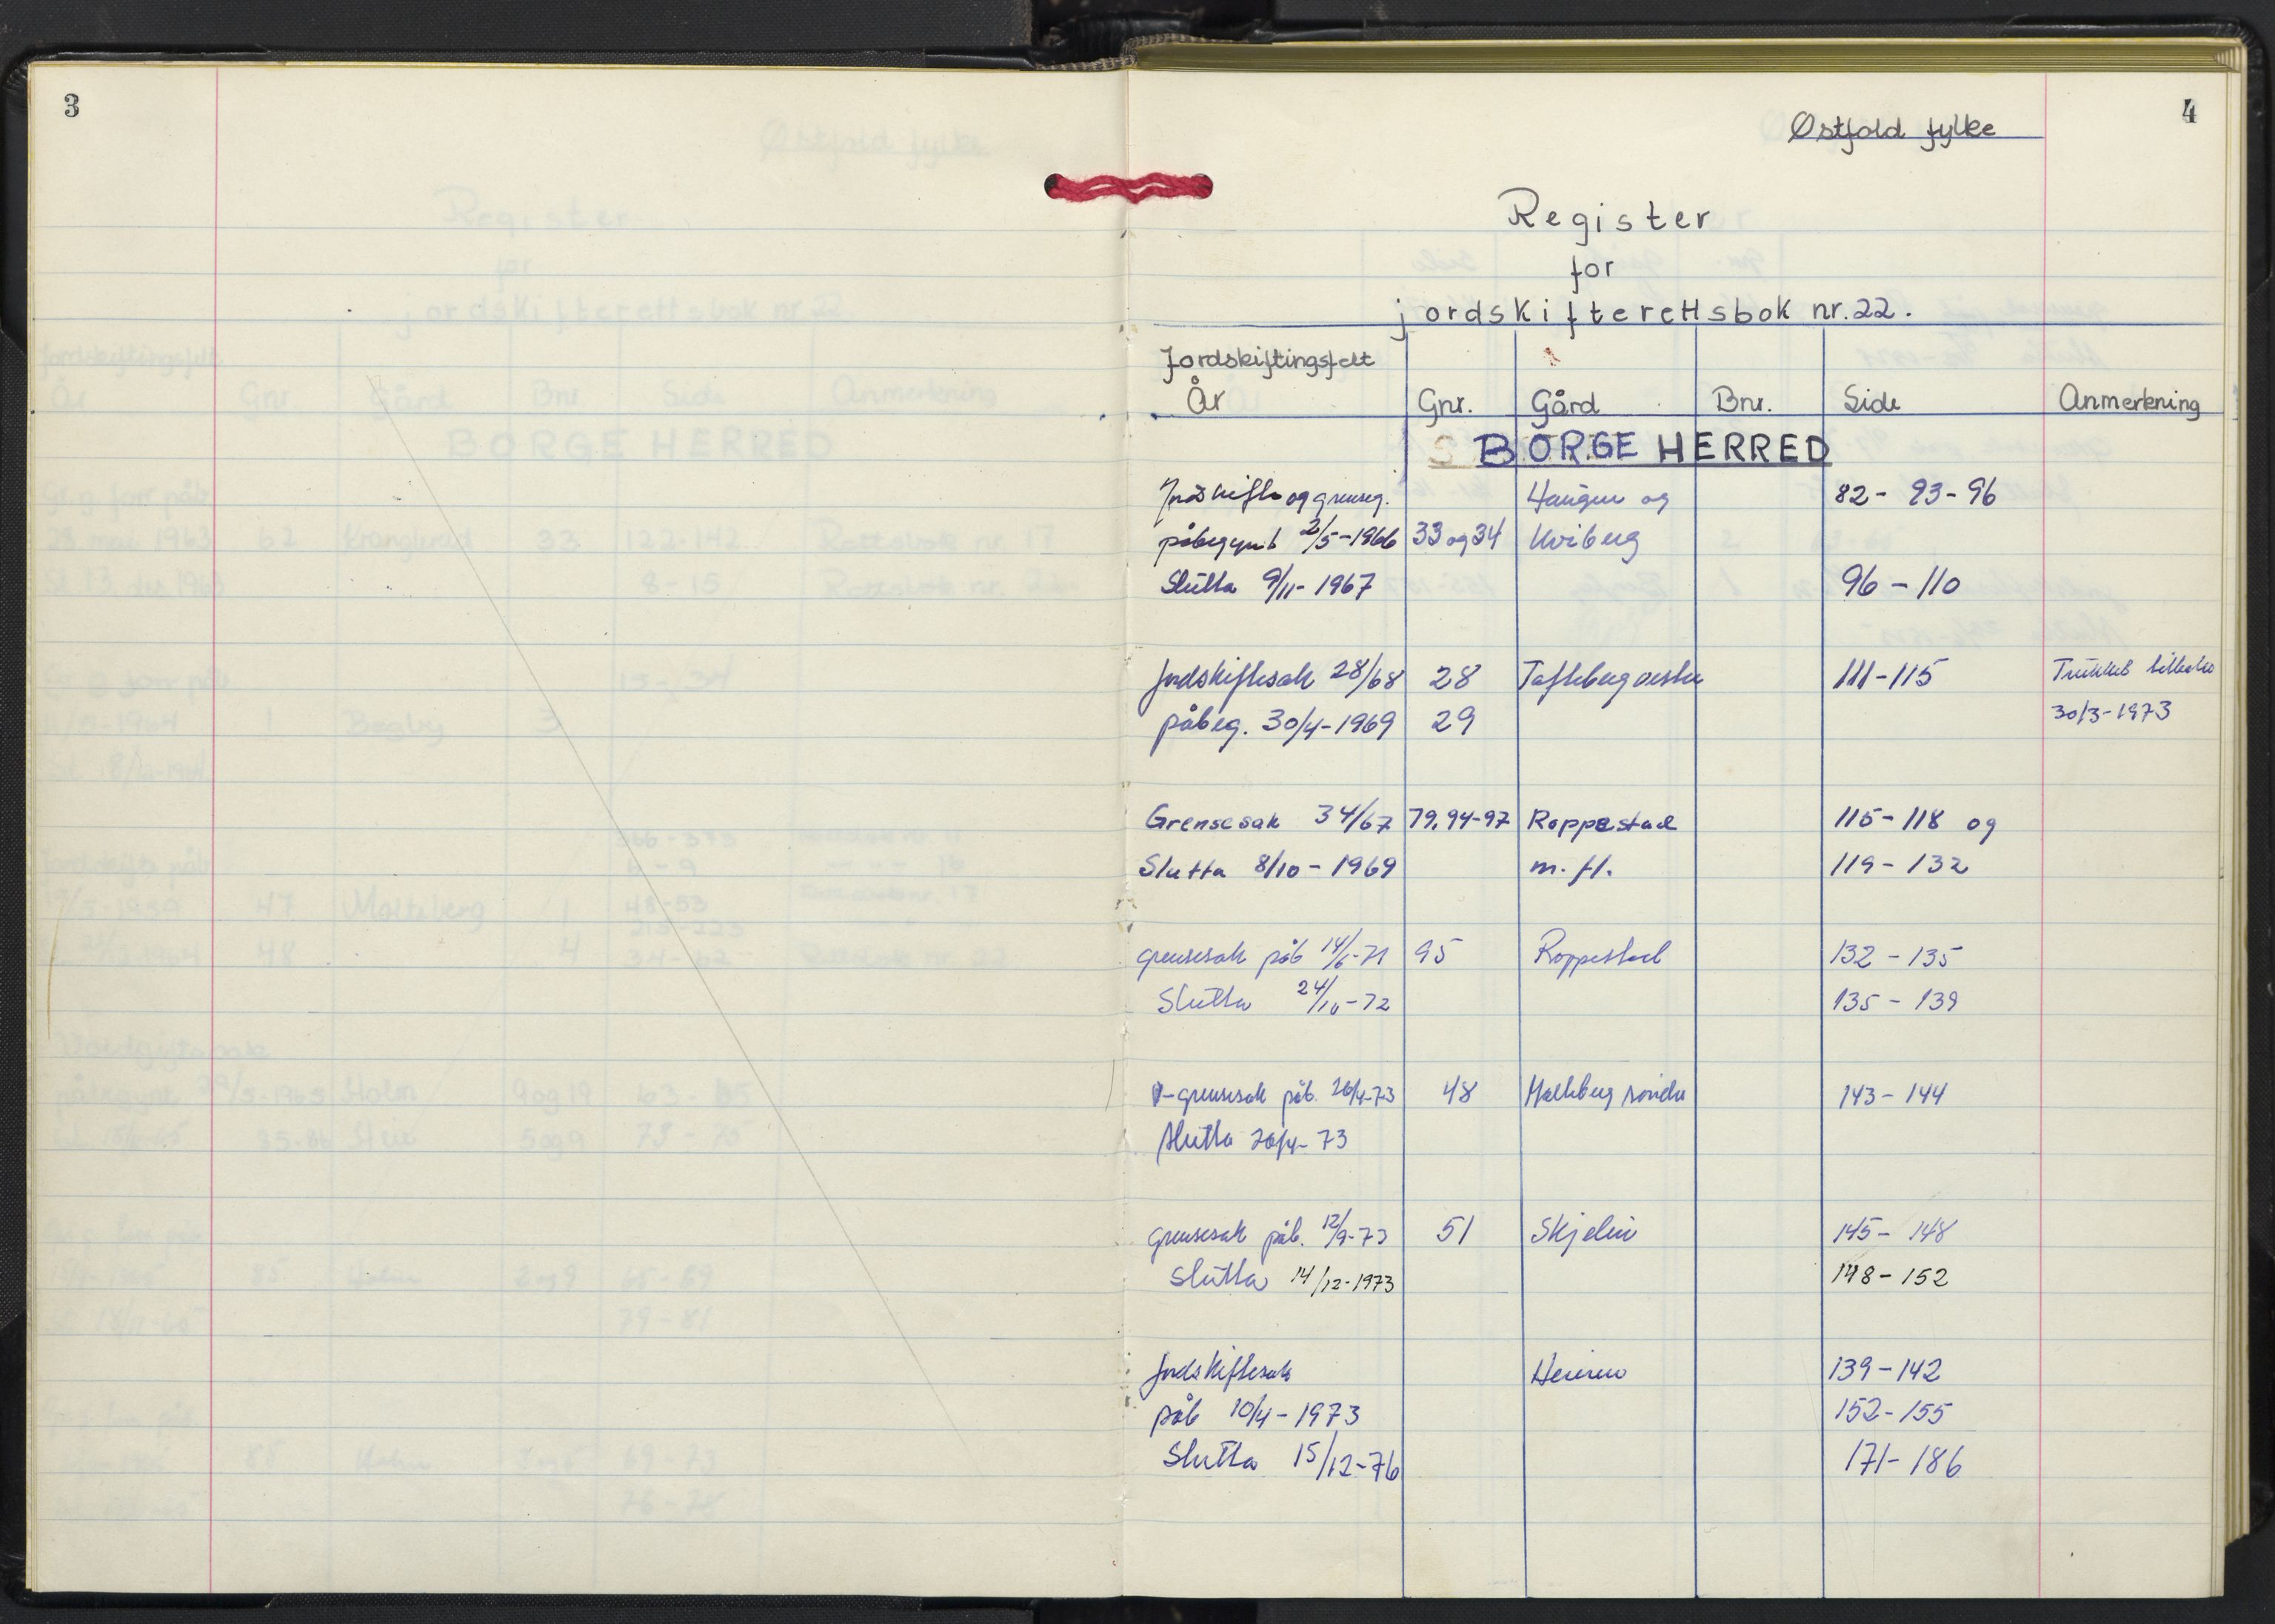 3
4
Østfold fylke
Register
for
jordskifterettsbok nr. 22.
Jordskiftingsfelt
År Gnr. Gård Bnr. Side Anmerkning
BORGE HERRED
Jordskifte og grenseg. Haugen og 82 - 93 - 96
påbegynt 2/5-1966 33 og 34 Kviberg
Slutta 9/11-1967 96 - 110
Jordskiftesak 28/68 28 Tofteberg vestre 111-115 Trukket tilbake
påbeg. 30/4-1969 29 30/3-1973
Grensesak 34/67 79, 94-97 Roppestad 115 - 118 og
Slutta 8/10 - 1969 m. fl. 119 - 132
grensesak påb 14/6-71 95 Roppestad 132 - 135
Slutta 24/10-72 135 - 139
grensesak påb. 26/4-73 48 143 - 144
Slutta 26/4-73
grensesak påb. 12/9-73 51 Skjelin 145 - 148
Slutta 14/12-1973 148 - 152
Jordskiftesak 139 - 142
påb 10/4 - 1973 152 - 155
Slutta 15/12-76 171 - 186